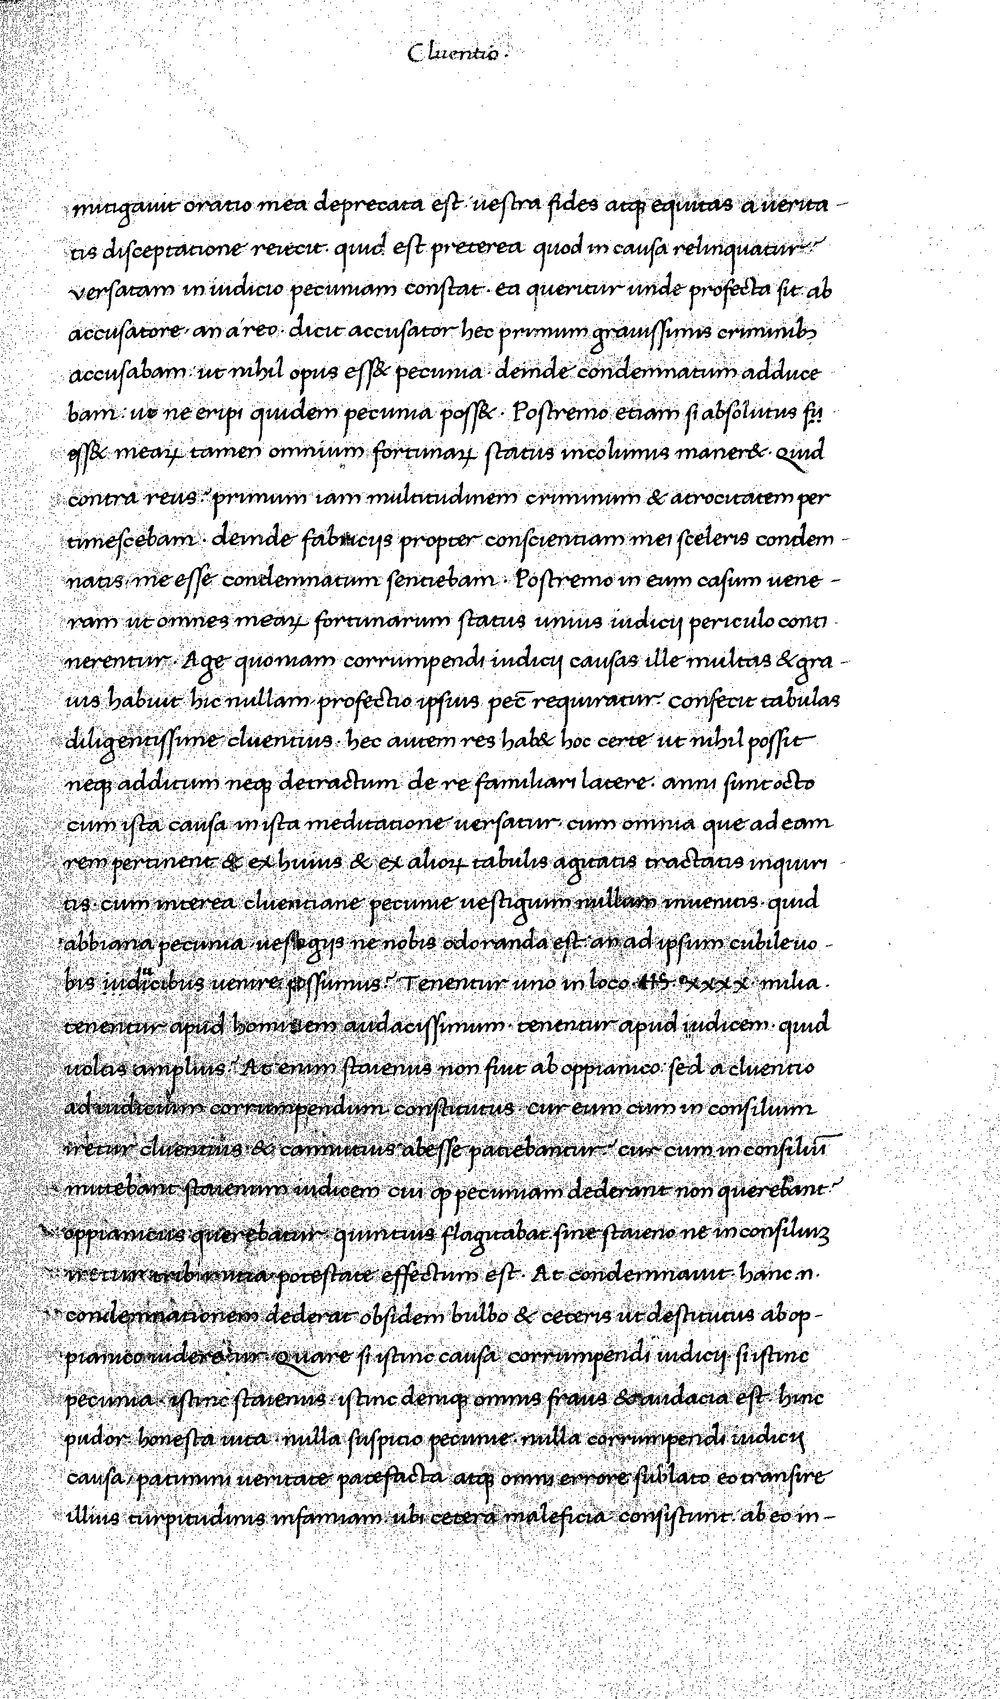 Cluentio ·
mitigauit oratio mea deprecata est · uestra fides atqꝫ equitas a uerita-
tis disceptatione reiecit · quid est preterea quod in causa relinquatur?
versatam in iudicio pecuniam constat · ea queritur unde profecta sit ab
accusatore · an a reo · dicit accusator hec primum grauissimis criminibꝫ
accusabam · ut nihil opus ess& pecunia · deinde condemnatum adduce
bam · ut ne eripi quidem pecunia poss& · Postremo etiam si absolutus
ess& meaꝝ tamen omnium fortunaꝝ status incolumis maner& · Quid
contra reus? primum iam multitudinem criminum & atrocitatem per
timescebam · deinde fabriciis propter conscientiam mei sceleris condem-
natis me esse condemnatum sentiebam · Postremo in eum casum uene-
ram ut omnes meaꝝ fortunarum status unius iudicij periculo conti
nerentur · Age quoniam corrumpendi iudicij causas ille multas & gra-
uis habuit hic nullam profectio ipsius pec̄ requiratur · confecit tabulas
diligentissime cluentius · hec autem res hab& hoc certe ut nihil possit
neqꝫ additum neqꝫ detractum de re familiari latere · anni sunt octo
cum ista causa in ista meditatione uersatur · cum omnia que ad eam
rem pertinent & ex huius & ex alioꝝ tabulis agitatis tractatis inquiri
tis · cum interea cluentiane pecunie uestigium nullam inuenitis · quid
abbiana pecunia uestigijs ne nobis odoranda est · an ad ipsum cubile uo-
bis iudicibus uenire possumus? Tenentur uno in loco HS milia ·
tenentur apud hominem audacissimum · tenentur apud iudicem · quid
uoltis amplius? At enim staienus non fuit ab oppianico sed a cluentio
ad iudicium corrumpendum constitutus · cur eum cum in consilium
iretur cluentius & cannutius abesse patiebantur? cur cum in consiliū
mittebant staienum iudicem cui ꝙ pecuniam dederant non querebant?
oppianicus querebatur · quintius flagitabat sine staieno ne in consiliuꝫ
iretur tribunitia potestate effectum est · At condemnauit · hanc .n.
condemnationem dederat obsidem bulbo & ceteris ut destitutus ab op-
pianico uideretur · Quare si istinc causa corrumpendi iudicij si istinc
pecunia · istinc staienus · istinc deniqꝫ omnis fraus & audacia est · hinc
pudor honesta uita · nulla suspitio pecunie · nulla corrumpendi iudicij
causa / patimini ueritate patefacta atqꝫ omni errore sublato eo transire
illius turpitudinis infamiam ubi cetera maleficia consistunt · ab eo in-